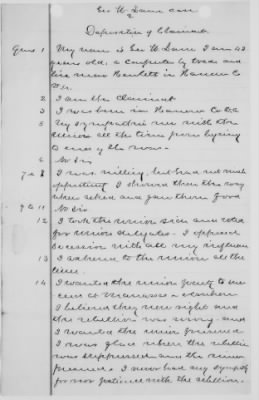 Geo W. Dunn
2
Deposition of Claimant
Ques. 1 My name is Geo W. Dunn I am 43
years old, a carpenter by trade and
live near Hewlett in Hanover Co
Va.
2 I am the Claimant
3 I was born in Hanover Co Va
5 My sympathies were with the
union all the time from beginning
to end of the war.
6 No Sir
7 & 8 I was willing but had not much
opportunity I showed them the way
when asked and gave them food
9 to 11 No Sir
12 I took the union side and voted
for union delegates. I opposed
secession with all my influence
13 I adhered to the union all the
time.
14 I wanted the union Army to
succeed at Manassas & elsewhere
I believed they were right and
the rebellion was wrong and
I wanted the union preserved
I was glad when the rebellion
was suppressed and the union
preserved I never had any sympathy
nor patience with the rebellion.